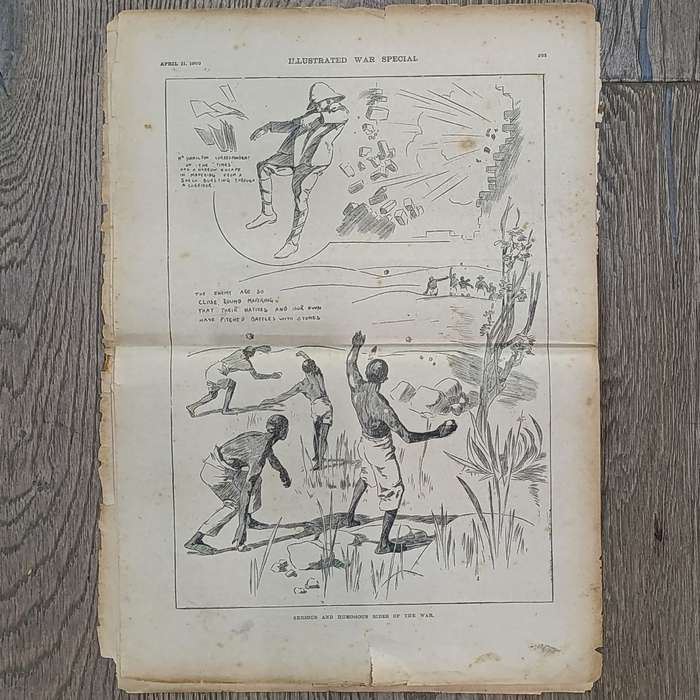 APRIL 21, 1900
ILLUSTRATED WAR SPECIAL
MR HAMILTON CORRESPONDENT
OF THE "TIMES"
HAD A NARROW ESCAPE
IN MAFEKING FROM A
SHELL BURSTING THROUGH
A CORRIDOR
THE ENEMY ARE SO
CLOSE ROUND MAFEKING
THAT THEIR NATIVES AND OUR OWN
HAVE PITCHED BATTLES WITH STONES
SERIOUS AND HUMOROUS SIDES OF THE WAR.